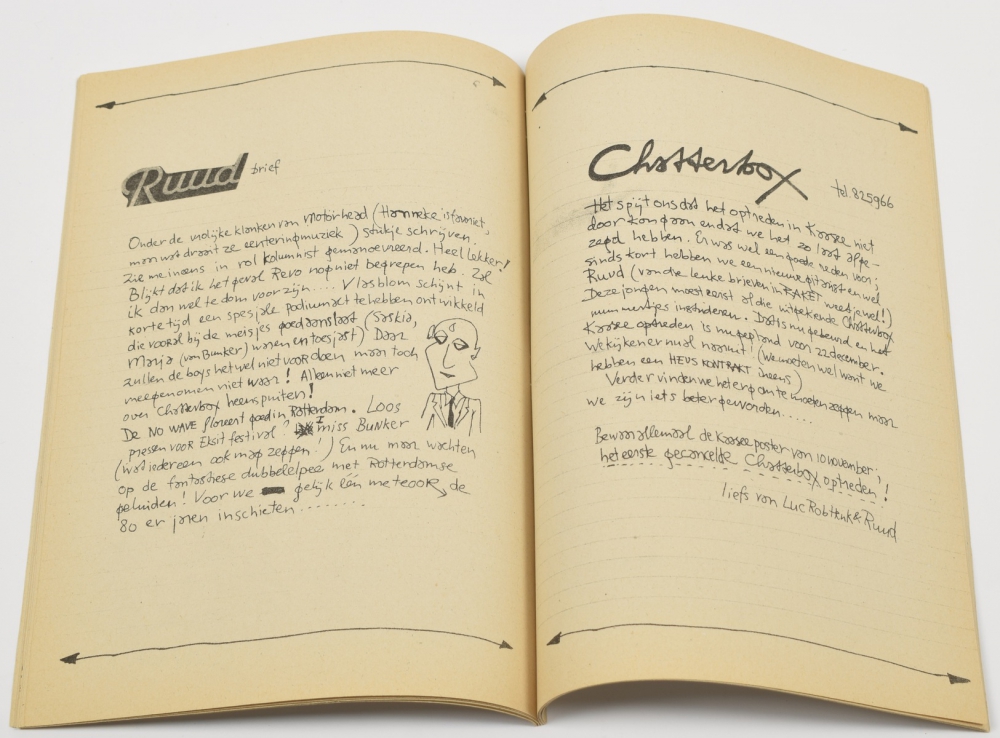 Ruud brief
Onder de vrolijke klanken van Motorhead (Hanneke is favoriet,
maar wat draait ze een teringmuziek) stukje schrijven.
Zie me ineens in rol kolumnist gemanoevreerd. Heel lekker!
Blijkt dat ik het geval Revo nog niet begrepen heb. Zal
ik dan wel te dom voor zijn.... Vlasblom schijnt in
korte tijd een spesjale podiumact te hebben ontwikkeld
die vooral bij de meisjes goed aanslaat (Saskia,
Marja (van Bunker) waren entoesjast) Daar
zullen de boys het wel niet voor doen maar toch
meegenomen niet waar! Alleen niet meer
over Chatterbox heenspuiten!
De NO WAVE floreert goed in Rotterdam. Loos
pressen voor Eksit festival? I miss BUNKER
(wat iedereen ook mag zeggen!) En nu maar wachten
op de fantastiese dubbelelpee met Rotterdamse
geluiden! Voor we gelijk één meteoor, de
80 er jaren inschieten........
Chatterbox
tel. 825966
Het spijt ons dat het optreden in Kaasee niet
door kon gaan en dat we het zo laat afge-
zegd hebben. Er was wel een goede reden voor;
sinds kort hebben we een nieuwe gitarist en wel
Ruud (van die leuke brieven in RAKET weet je wel!)
Deze jongen moest eerst al die uitgekiende Chatterbox
nummertjes instuderen. Dat is nu gebeurd en het
Kaasee optreden is nu gepland voor 22 december.
We kijken er naar uit! (we moeten wel want we
hebben een HEUS KONTRAKT ineens)
Verder vinden we het erg om te moeten zeggen maar
we zijn iets beter geworden....
Bewaar allemaal de Kaasee poster van 10 november;
het eerste gecancelde Chatterbox optreden!!
liefs van Luc Rob Henk & Ruud